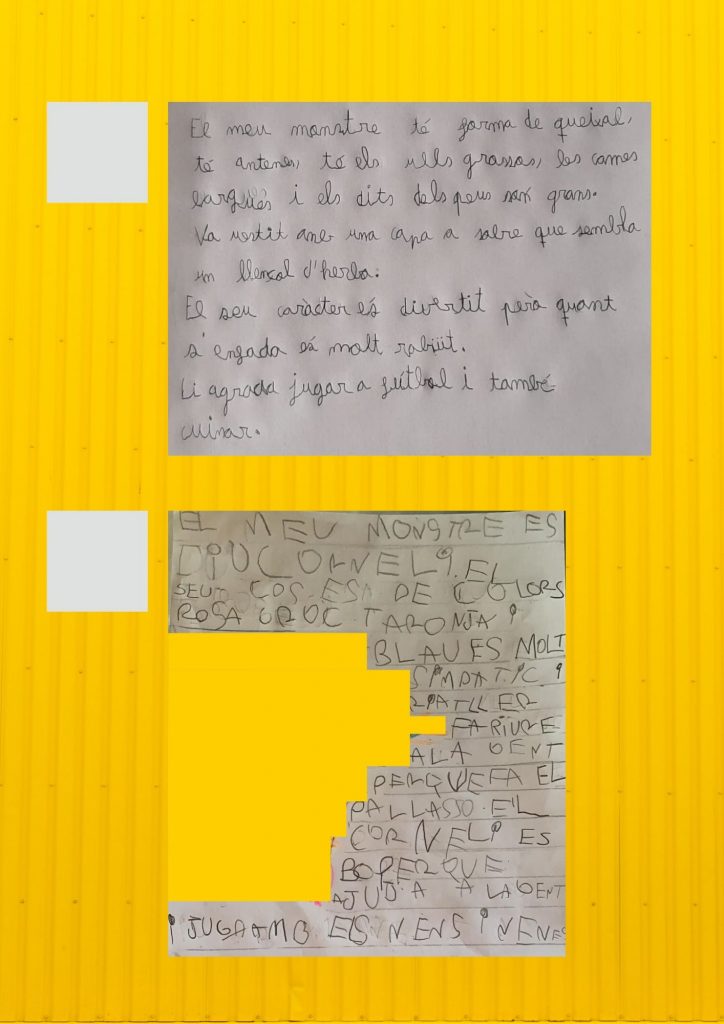 El meu monstre té forma de queixal,
té antenes, té els ulls grossos, les cames
llargues i els dits dels peus son grans.
Va vestit amb una capa a sobre que sembla
un llençol d'herba.
El seu caràcter és divertit però quant
s'enfada és molt rabiüt.
Li agrada jugar a fútbol i també
cuinar.
EL MEU MONSTRE ES
DIU CORNELI. EL
SEU COS ES DE COLORS
ROSA GROC TARONJA I
BLAU ES MOLT
SIMPATIC I
FA RIURE
A LA GENT
PERQUE FA EL
PALLASSO. EL
CORNELI ES
BO PERQUE
AJUDA A LA GENT
I JUGA AMB ELS NENS I NENES